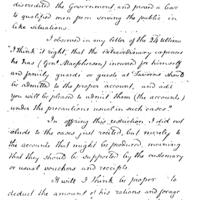 discredited the Government, and proved a bar
to qualified men from serving the public in
like situations.
I observed in my letter of the 24 Ultimo
"I think it right, that the extraordinary expences
he has (Genl. Macpherson) incurred for himself
and family guards or guests at Taverns should
be admitted to the proper account, and ask
you will be pleased to admit them (the accounts)
under the precautions usual in such cases."
In offering this restriction I did not
allude to the cases just recited, but merely to
the accounts that might be produced, meaning
that they should be supported by the customary
or usual vouchers and receipts
It will I think be proper to
deduct the amount of his rations and forage